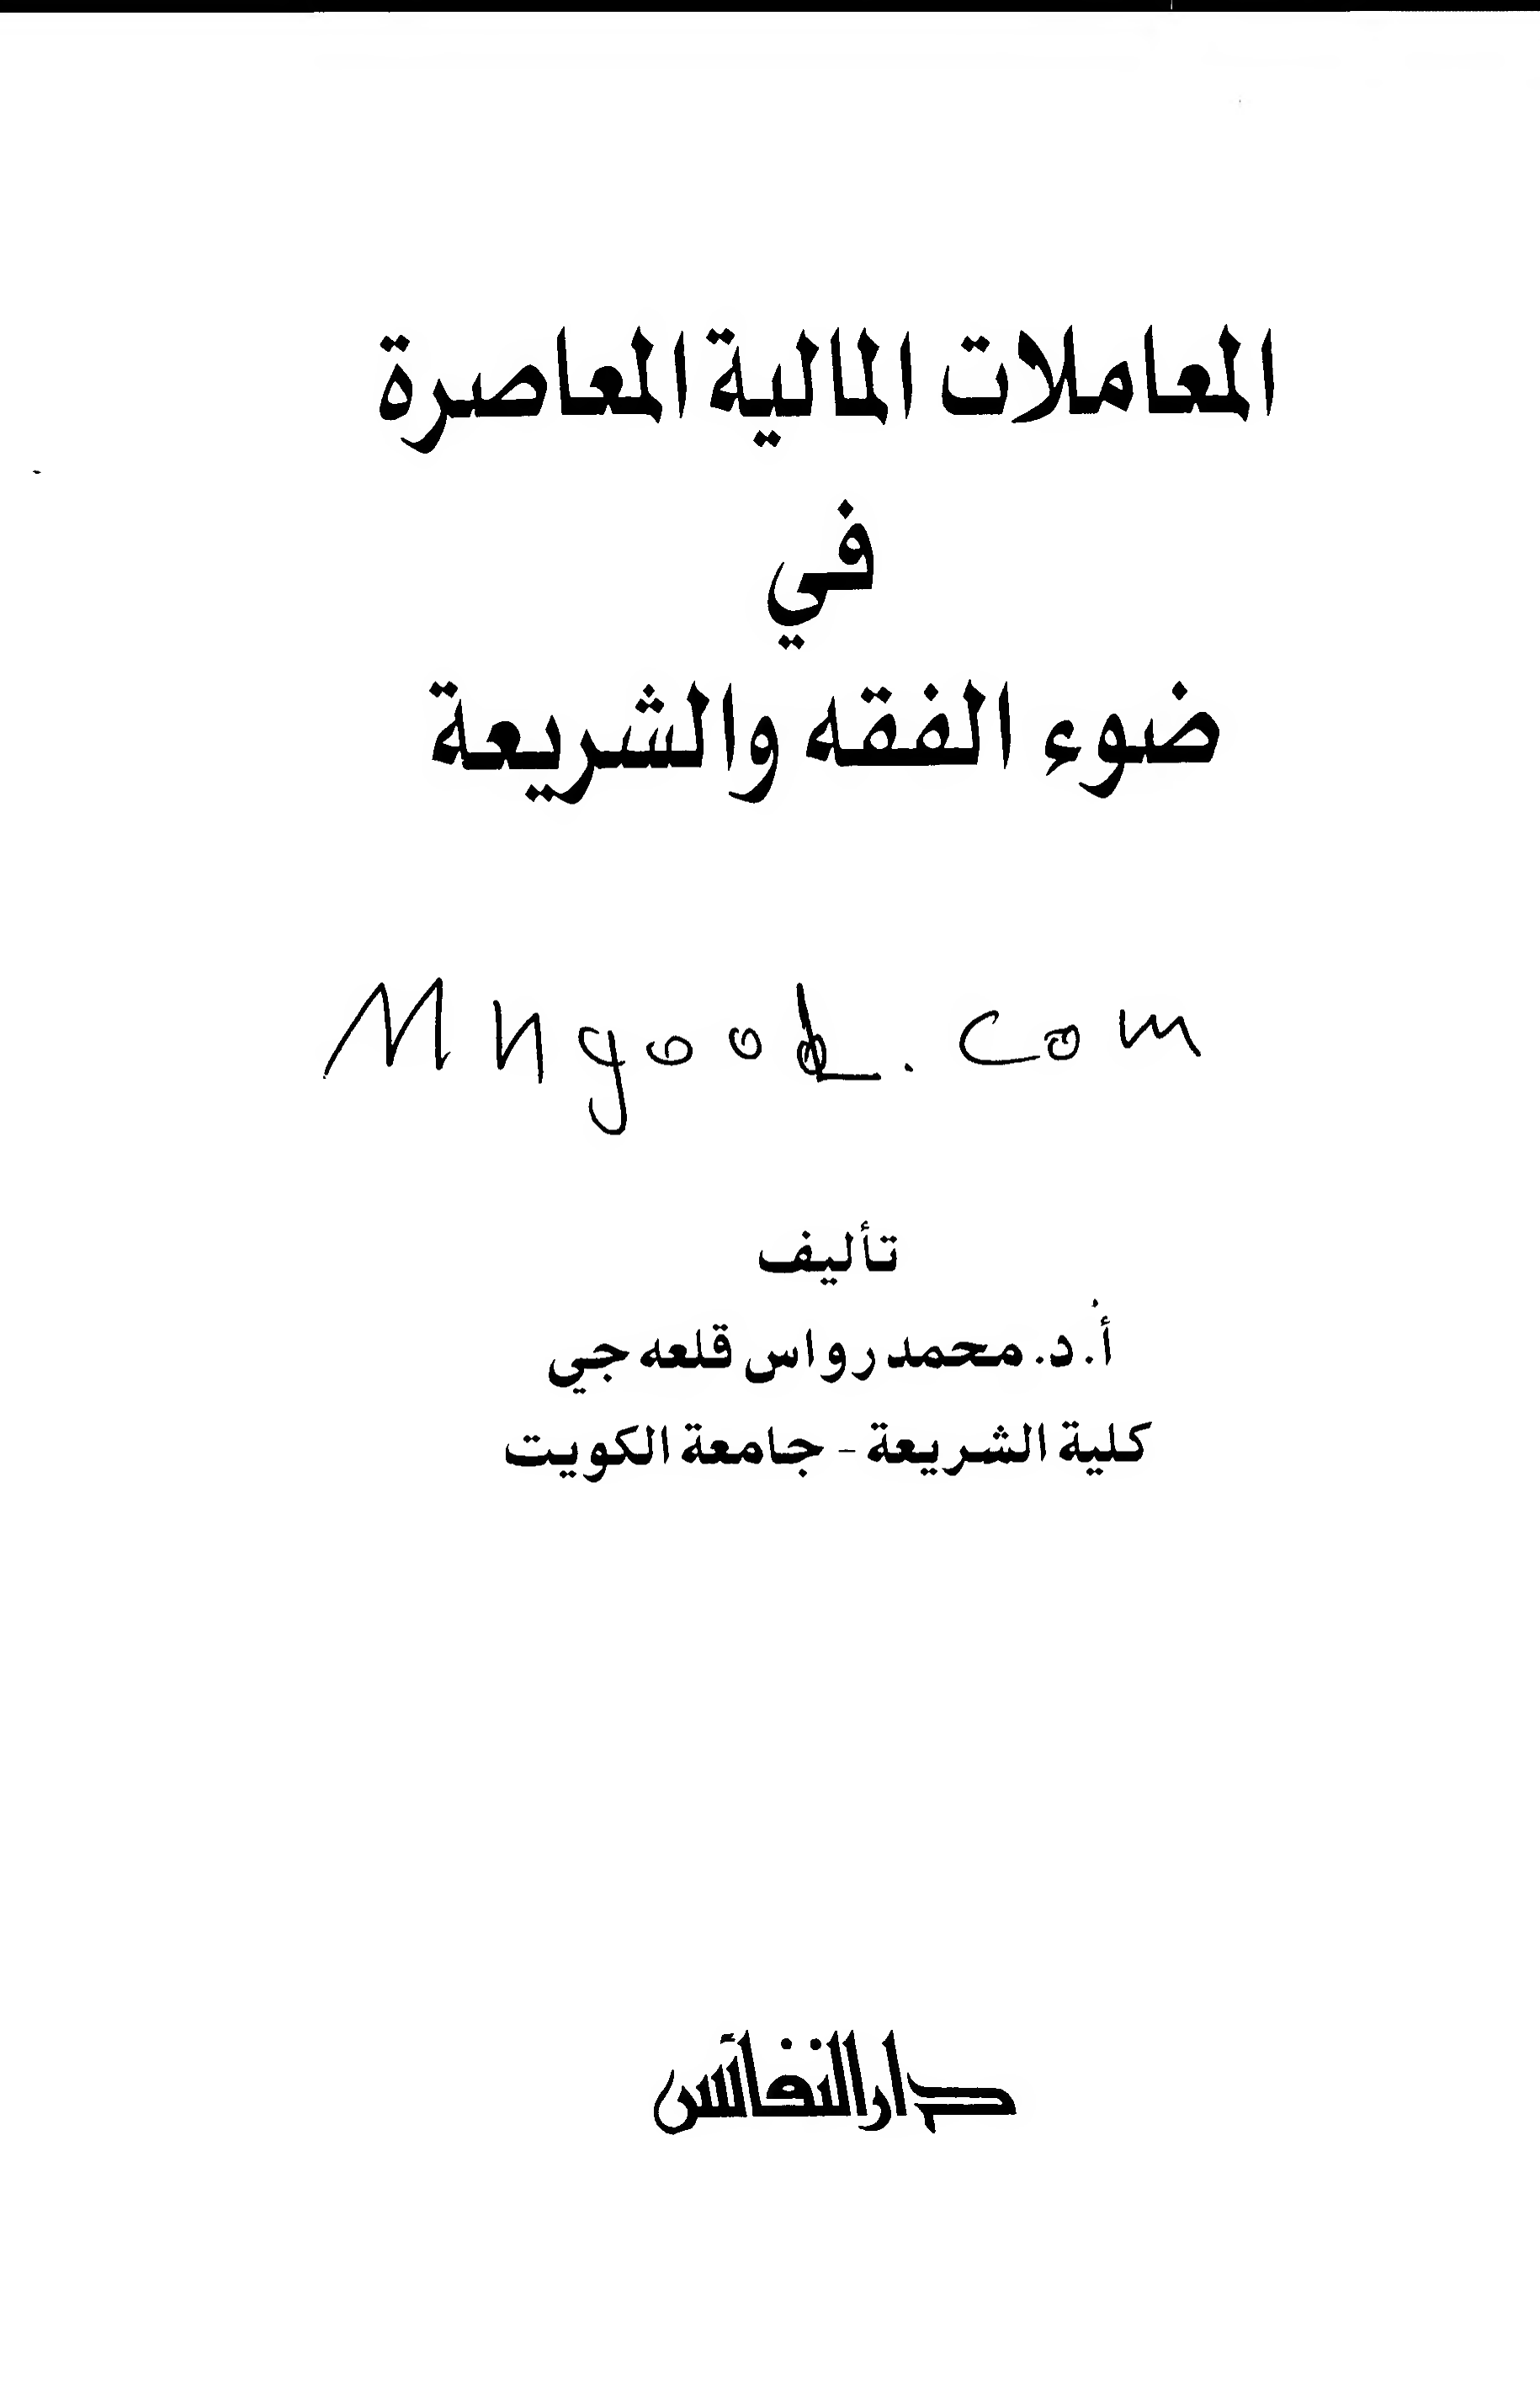 المعاملات المالية المعاصرة
في
ضوء الفقه والشريعة
Mngool.com
تأليف
أ. د. محمد رواس قلعه جي
كلية الشريعة - جامعة الكويت
دار النفائس